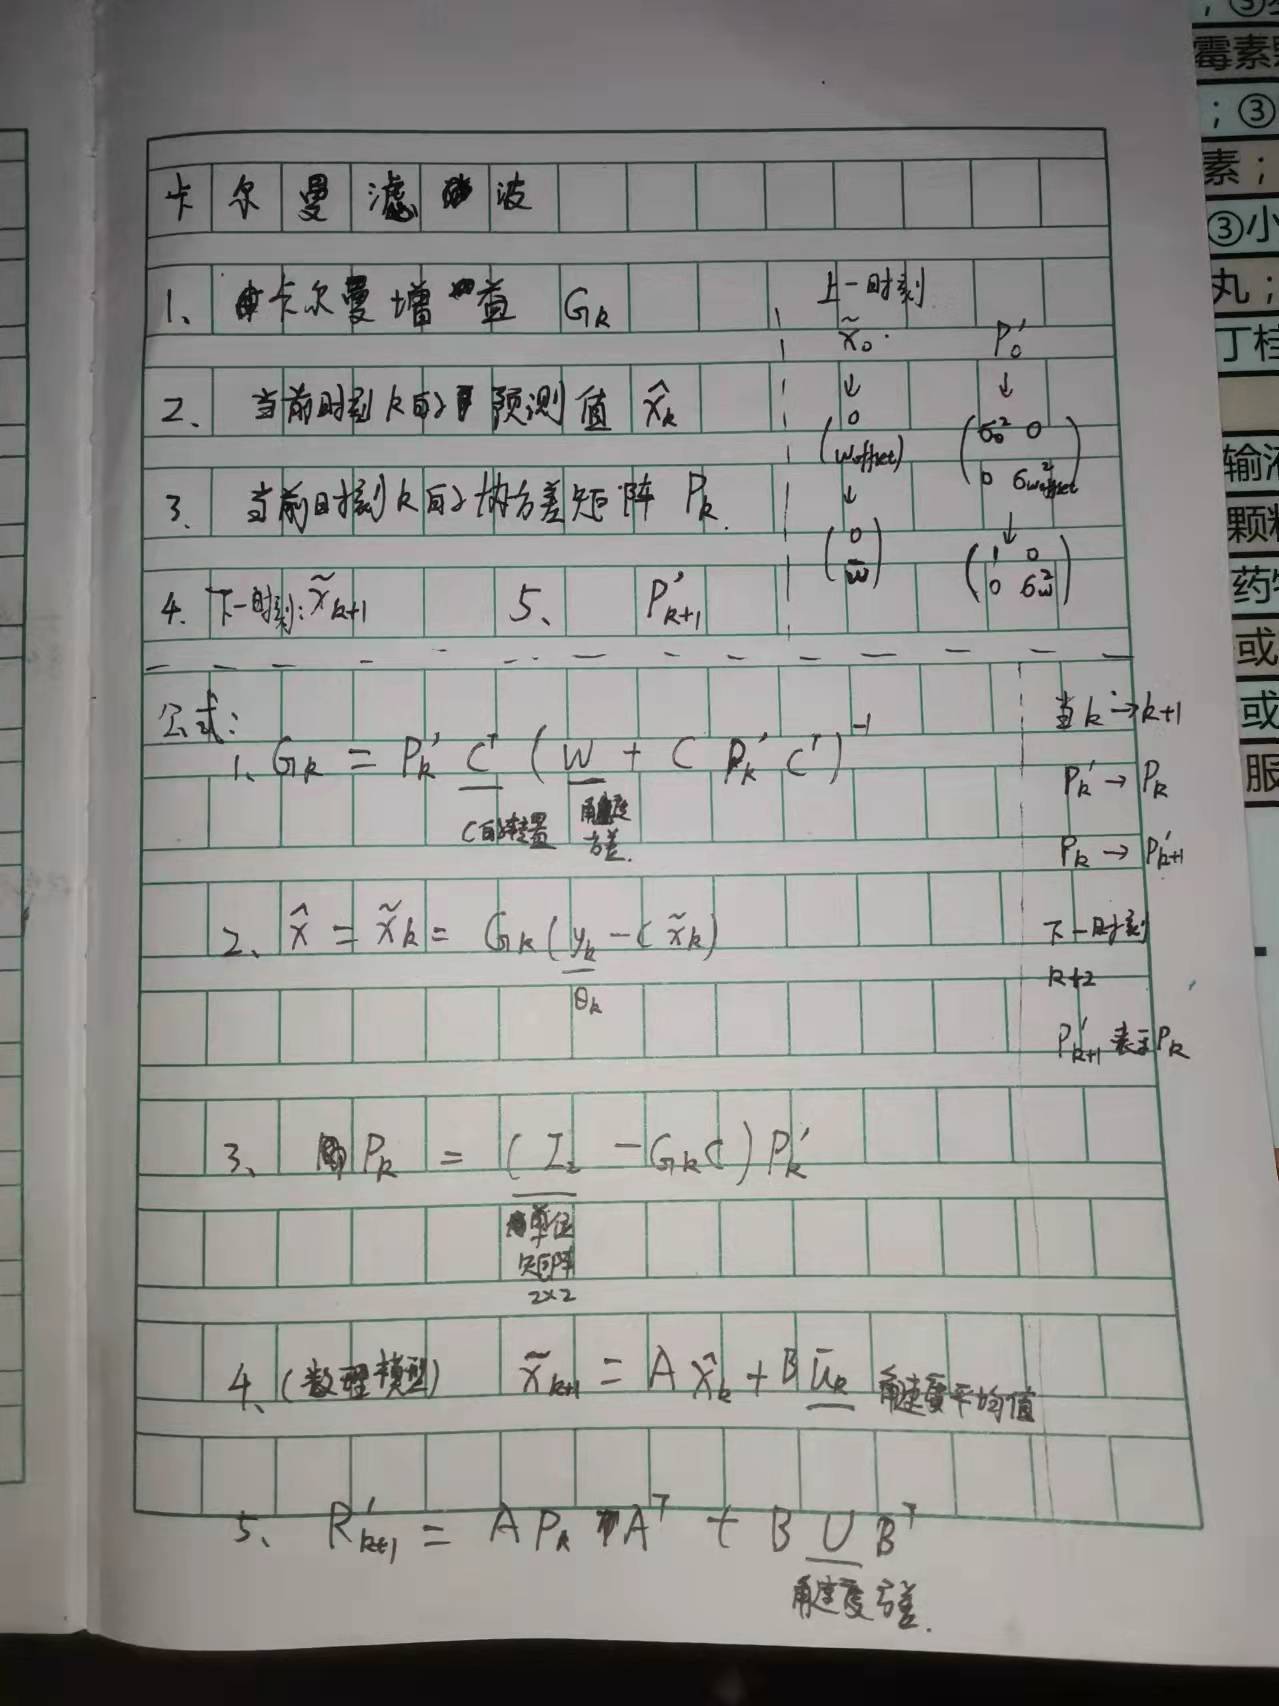 卡尔曼滤波
1、卡尔曼增益 Gk
2、当前时刻k的预测值 x̂k
3、当前时刻k的协方差矩阵 Pk.
4.下一时刻: x̃k+1 5、 P'k+1
上一时刻
x̃0. P0'
↓ ↓
(0 woffset) (σ0² 0 0 σwoffset²)
↓ ↓
(0 w̄) (1 0 0 σw²)
公式:
1、Gk = Pk' Cᵀ (W + C Pk' Cᵀ)⁻¹
C的转置 角度方差.
2、x̂ = x̃k = Gk(yk - C x̃k)
θk
3、Pk = (I2 - GkC) Pk'
单位
矩阵
2×2
4、(数理模型) x̃k+1 = A x̂k + B ūk 角速度平均值
5、R'k+1 = A Pk Aᵀ + B U Bᵀ
角速度方差.
当k→k+1
Pk' → Pk
Pk → P'k+1
下一时刻
k+2
P'k+1 表示Pk
霉素
; ③
素;
③小
丸;
丁桂
输液
颗粒
药物
或
或
服